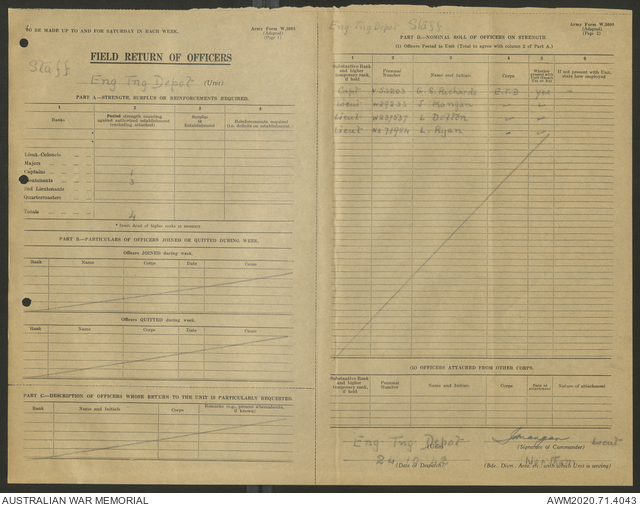 TO BE MADE UP TO AND FOR SATURDAY IN EACH WEEK.
Army Form W.3008
(Adapted)
(Page 1)
FIELD RETURN OF OFFICERS
Staff
Eng Tng Depot (Unit)
PART A.—STRENGTH, SURPLUS OR REINFORCEMENTS REQUIRED.
1 2 3 4
Ranks
Posted strength counting against authorised establishment (excluding attached)
Surplus to Establishment
Reinforcements required (i.e. deficits on establishment)
Lieut.-Colonels
Majors
Captains 1
Lieutenants 3
2nd Lieutenants
Quartermasters
Totals 4
PART B.—PARTICULARS OF OFFICERS JOINED OR QUITTED DURING WEEK.
Officers JOINED during week.
Rank Name Corps Date Cause
Officers QUITTED during week.
Rank Name Corps Date Cause
PART C.—DESCRIPTION OF OFFICERS WHOSE RETURN TO THE UNIT IS PARTICULARLY REQUESTED.
Rank Name and Initials Corps Remarks (e.g., present whereabouts, if known)
Eng Tng Depot Staff
Army Form W.3008
(Adapted)
(Page 2)
PART D.—NOMINAL ROLL OF OFFICERS ON STRENGTH.
(i) Officers Posted to Unit (Total to agree with column 2 of Part A.)
1 2 3 4 5 6
Substantive Rank and higher temporary rank, if held.
Personal Number
Name and Initials
Corps
Whether present with Unit (Insert Yes or No)
If not present with Unit, state how employed
Capt Richards E.T.D yes –
Lieut J Mangan
Lieut L
Lieut L. Ryan
(ii) OFFICERS ATTACHED FROM OTHER CORPS.
Substantive Rank and higher temporary rank, if held.
Personal Number
Name and Initials
Corps
Date of attachment
Nature of attachment
Eng Tng Depot
(Unit)
Lieut
(Signature of Commander)
(Date of Despatch)
(Bde. Divn., Area, etc., with which Unit is serving)
AUSTRALIAN WAR MEMORIAL
AWM2020.71.4043